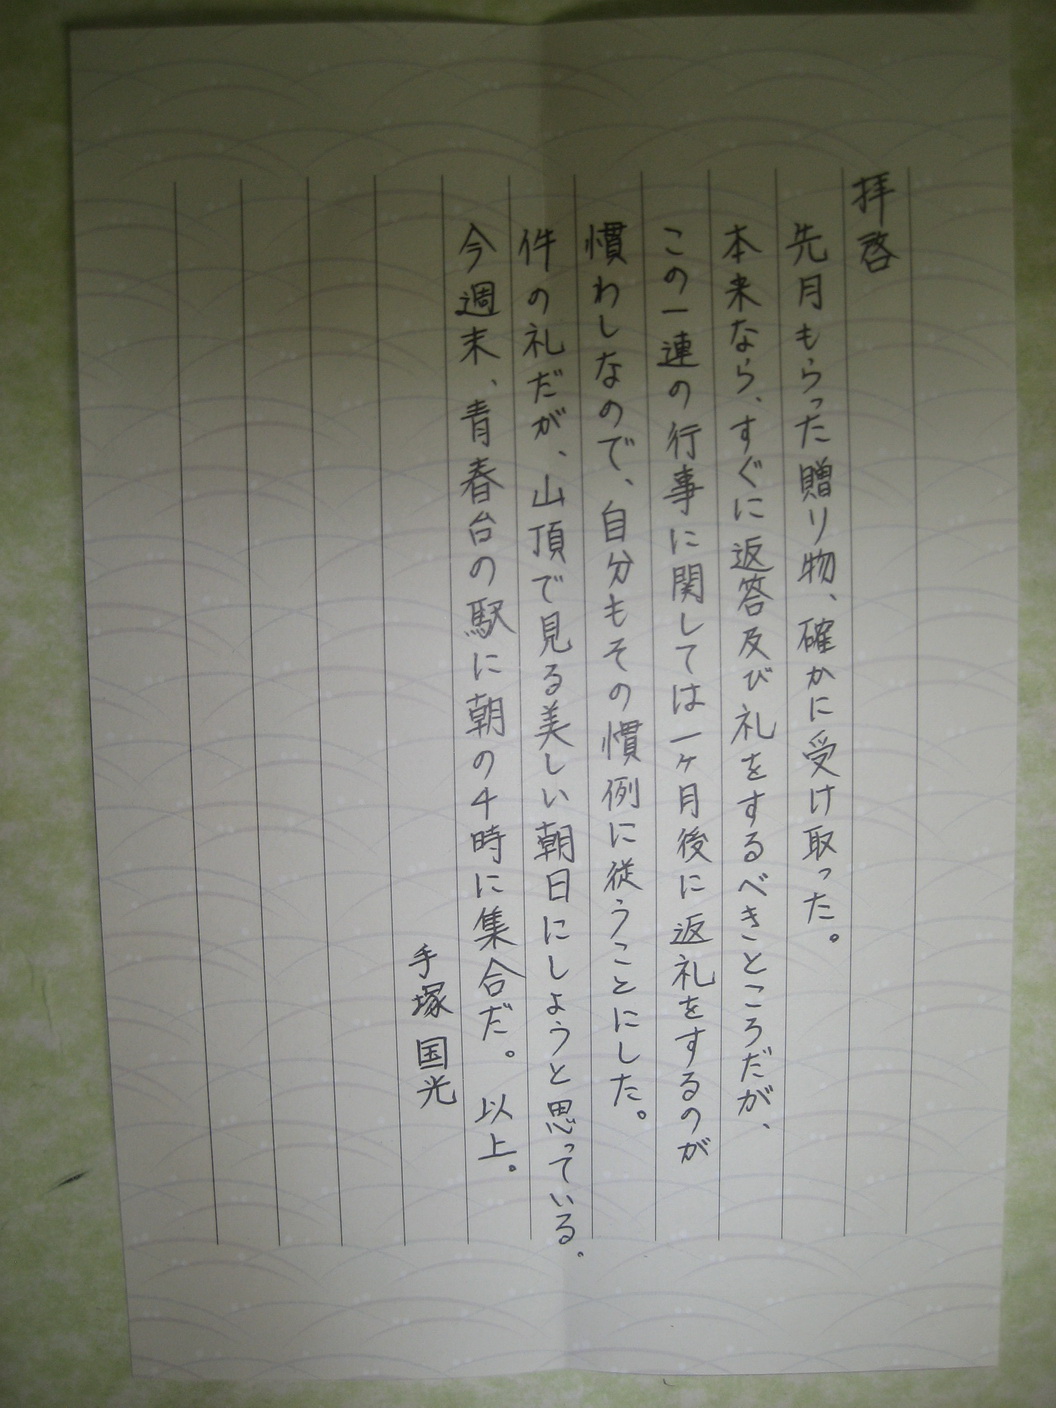 拝啓
先月もらった贈り物、確かに受け取った。
本来なら、すぐに返答及び礼をするべきところだが、
この一連の行事に関しては一ヶ月後に返礼をするのが
慣わしなので、自分もその慣例に従うことにした。
件の礼だが、山頂で見る美しい朝日にしようと思っている。
今週末、青春台の駅に朝の4時に集合だ。 以上。
手塚国光